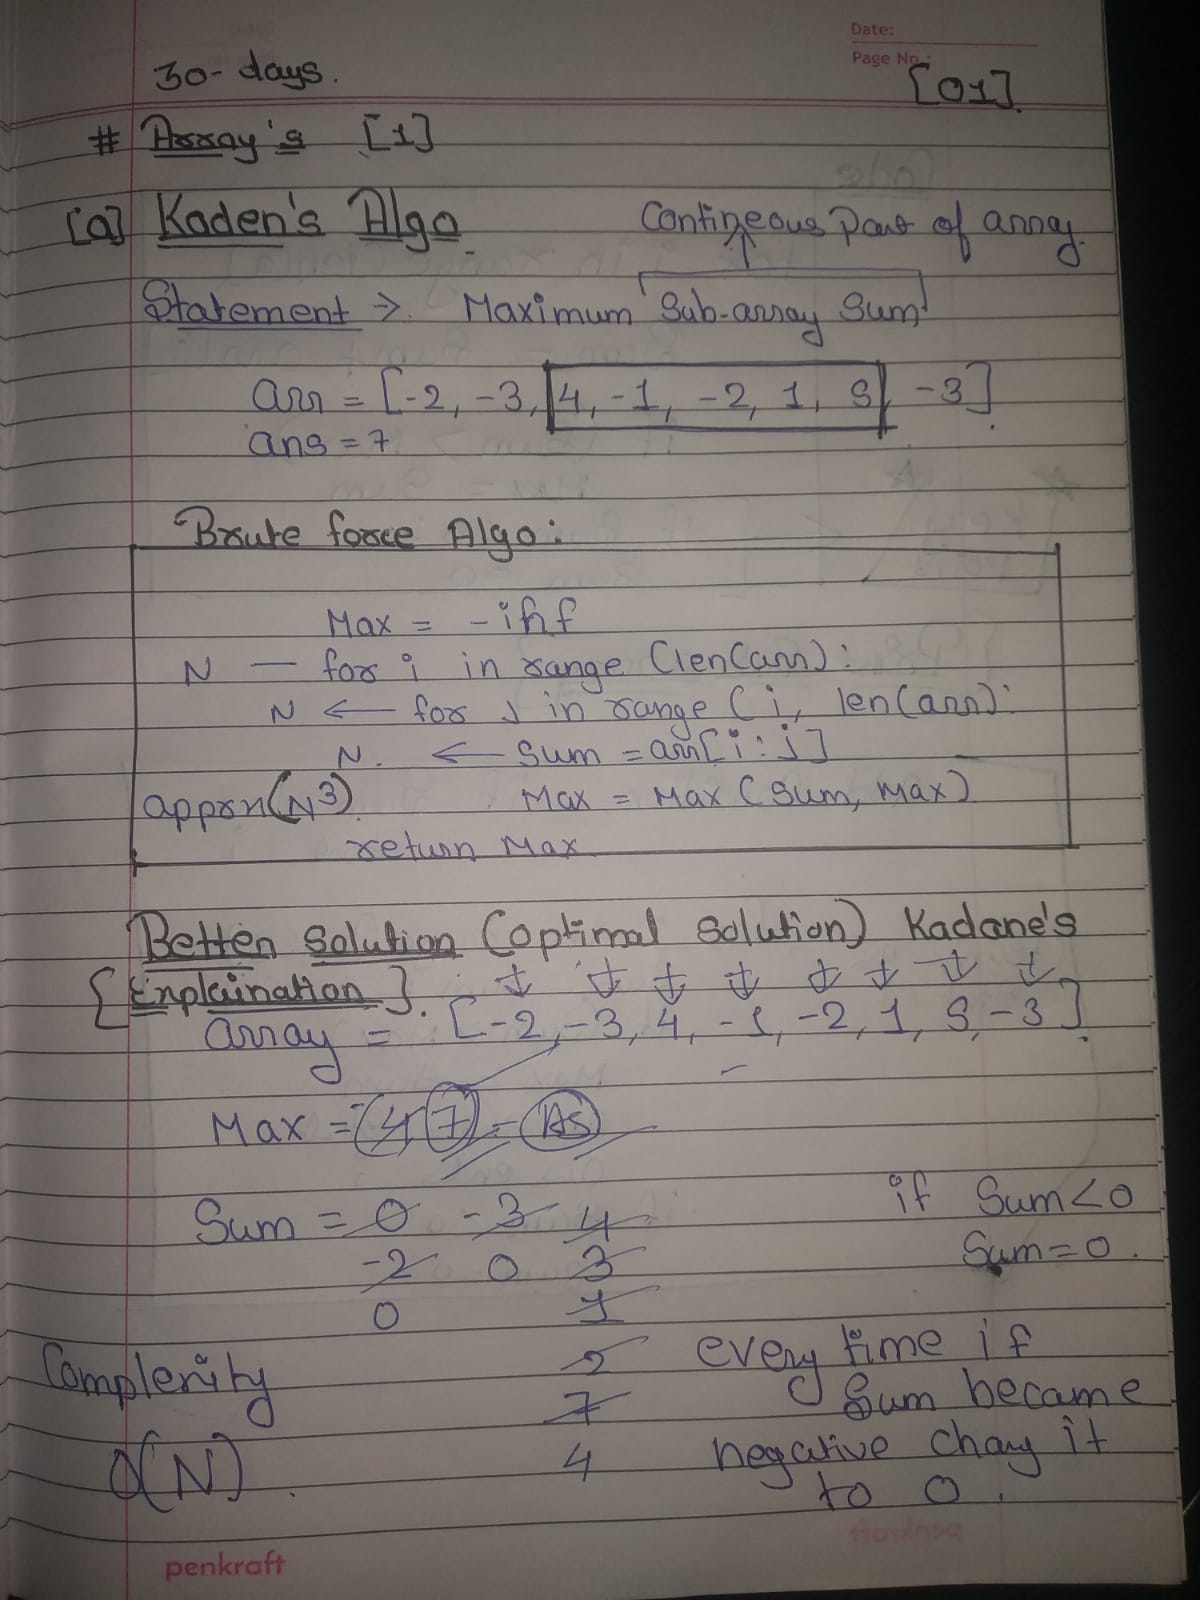 Date:
Page No.:
30-days.
[01]
# Array's [1]
[a] Kaden's Algo.
Contineous Part of array.
Statement → Maximum Sub-array Sum
arr = [-2, -3, 4, -1, -2, 1, 5, -3]
ans = 7
Brute force Algo:
Max = -inf
N — for i in range (len(arr):
N ← for j in range (i, len(arr):
N. ← Sum = arr[i:j]
appox(N³) Max = Max (Sum, Max)
return Max
Better solution (optimal solution) Kadane's
{Explaination}.
array = [-2, -3, 4, -1, -2, 1, 5, -3]
Max = 4 7
Sum = 0 -3 4
if Sum<0
-2 0 3
Sum=0.
0 1
Complexity 2 every time if
7 Sum became
O(N). 4 negative chang it
to 0.
penkraft